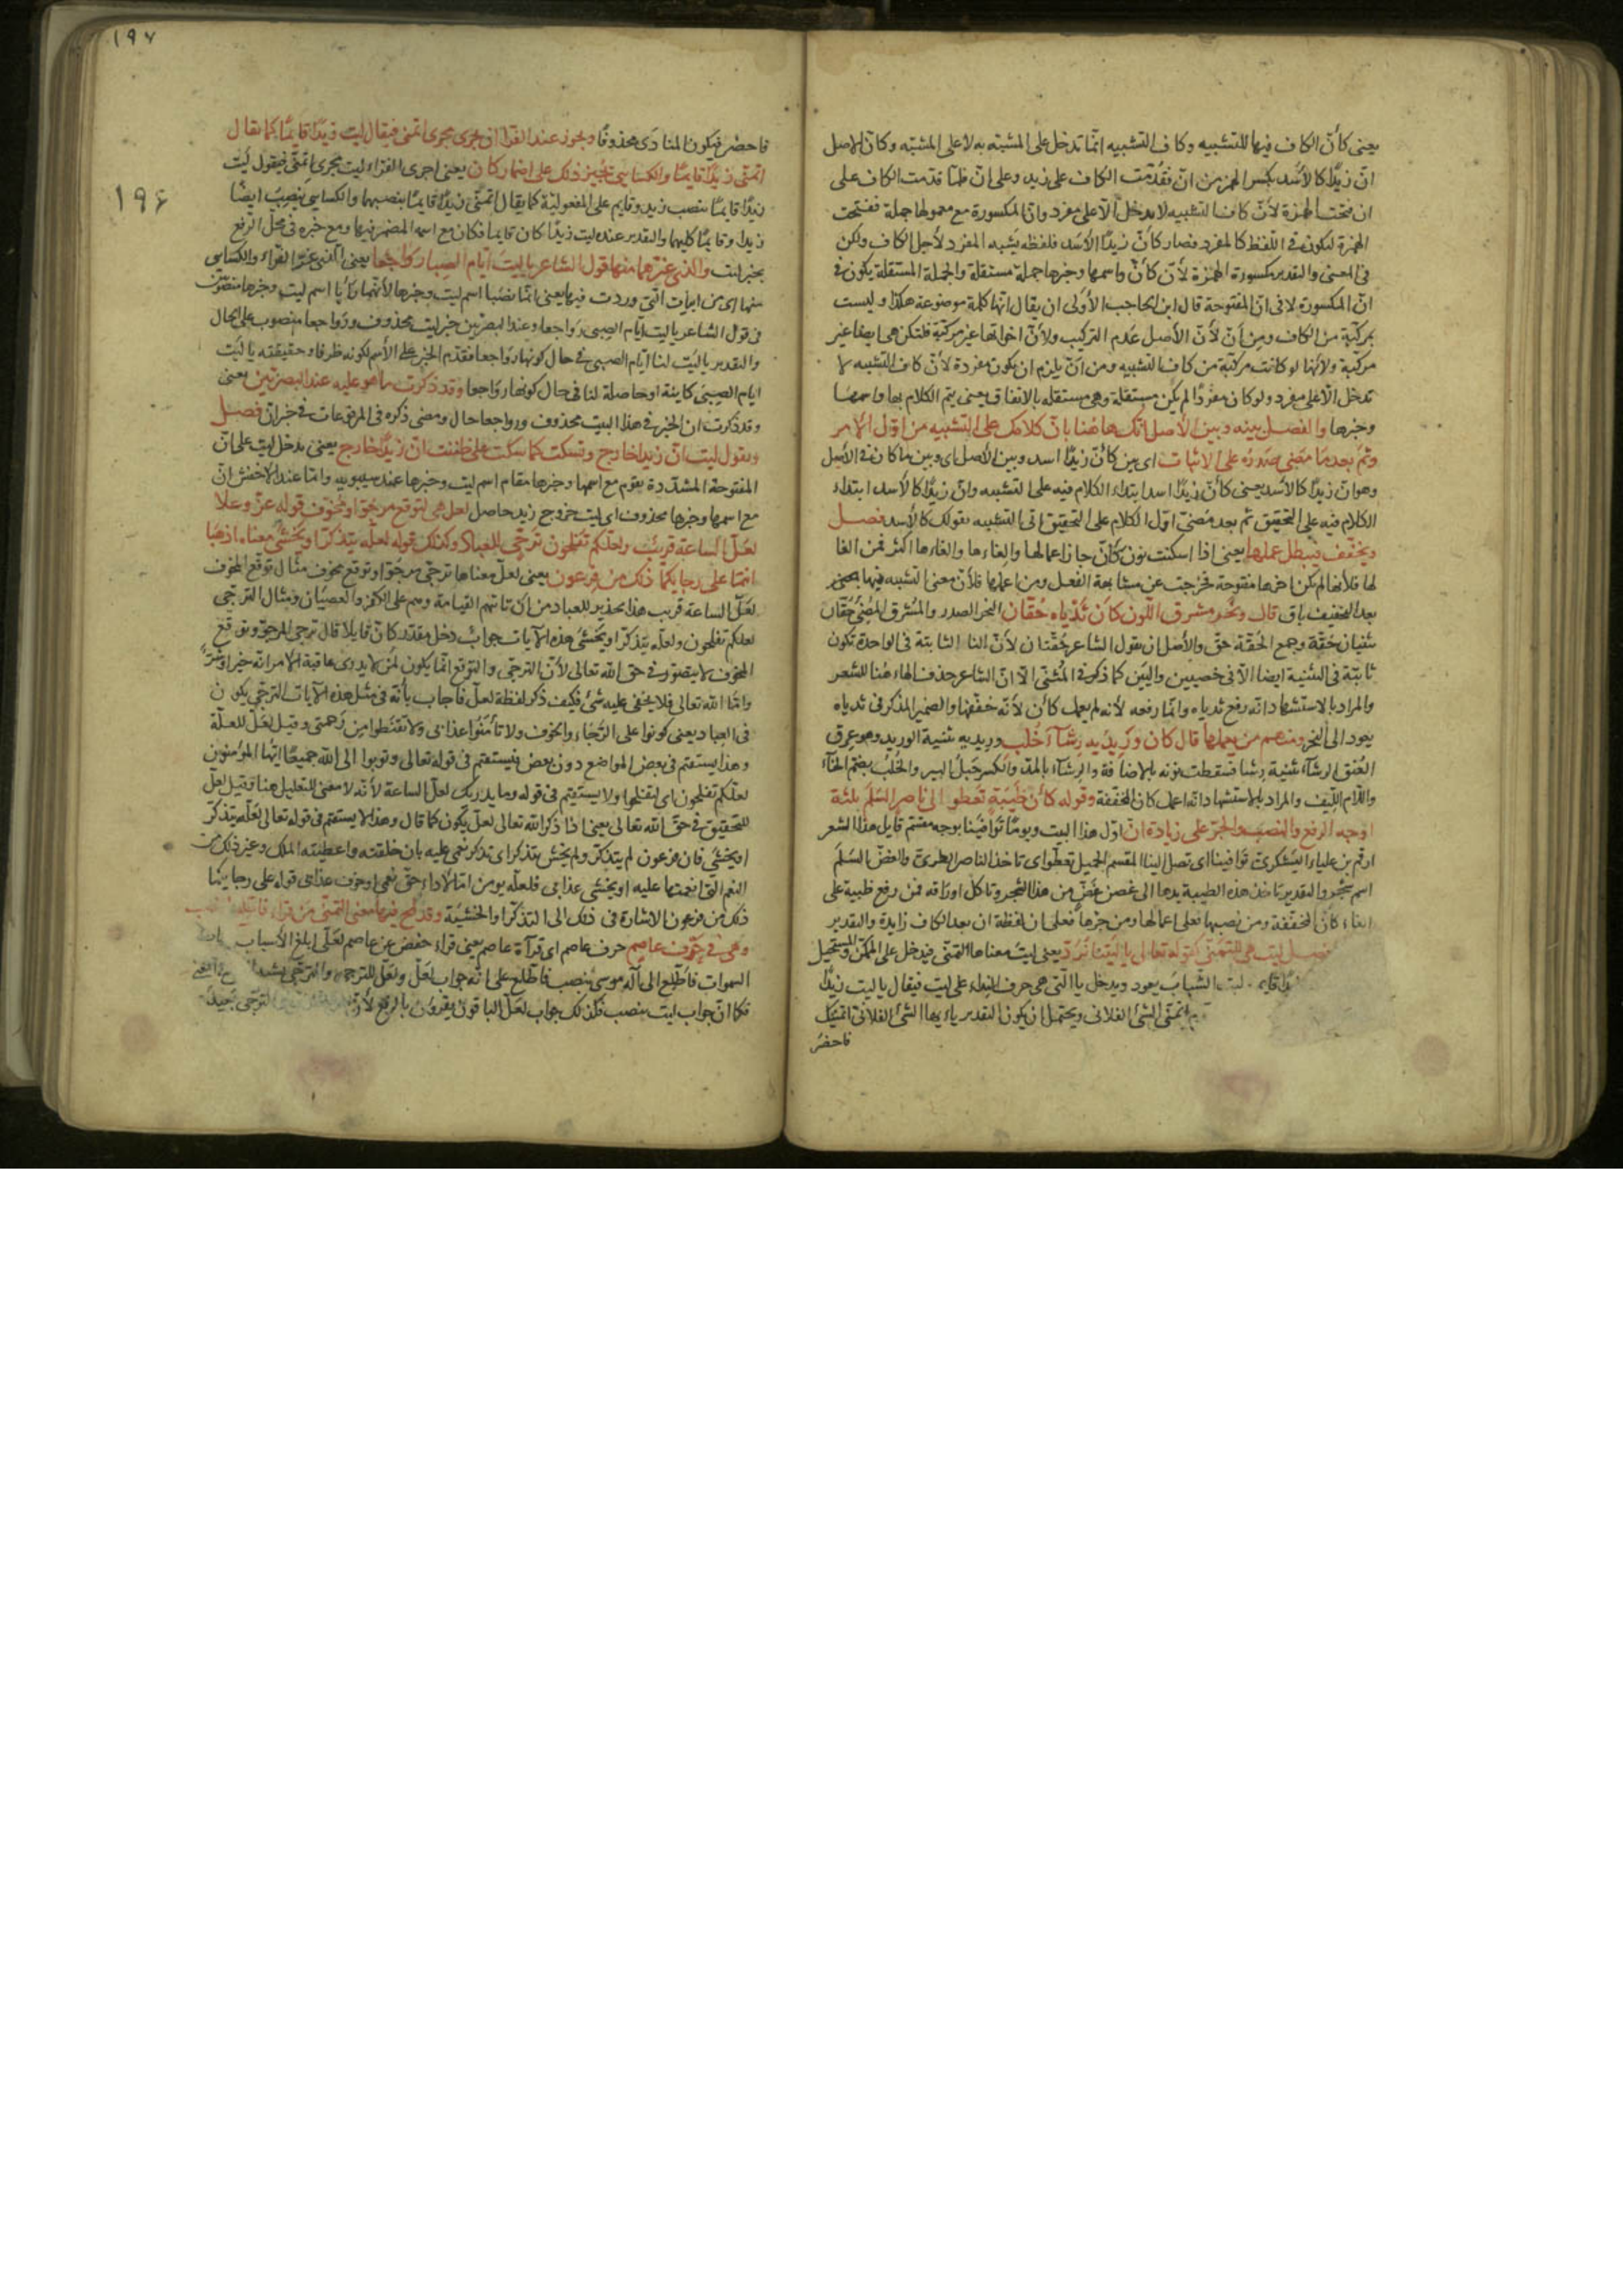 يعنى كأنّ الكاف فيها للتشبيه وكاف التشبيه انّما تدخل على المشبّه به لا على المشبّه وكان الاصل
انّ زيدًا كالأسد بكسر الهمزة من انّ فقدّمت الكاف على زيد وعلى انّ فلمّا قدّمت الكاف على
ان فتحت الهمزة لأنّ كاف التشبيه لا يدخل الّا على مفرد وانّ المكسورة مع معمولها جملة ففتحت
الهمزة ليكون فى اللّفظ كالمفرد فصار كأنّ زيدًا الأسد فلفظه يشبه المفرد لأجل الكاف ولكن
فى المعنى والتقدير مكسورة الهمزة لأنّ كأنّ واسمها وخبرها جملة مستقلة والجملة المستقلة يكون فى
انّ المكسورة لا فى انّ المفتوحة قال ابن الحاجب الأولى ان يقال انّها كلمة موضوعة هكذا وليست
بمركّبة من الكاف ومن أنّ لأنّ الأصل عدم التركيب ولأنّ اخواتها غير مركّبة فلتكن هى ايضا غير
مركّبة ولأنها لو كانت مركّبة من كاف التشبيه ومن انّ يلزم ان يكون مفردة لأنّ كاف التشبيه لا
تدخل الّا على مفرد ولو كان مفردًا لم يكن مستقلة وهى مستقله بالاتفاق يعنى يتم الكلام بها واسمها
وخبرها والفصل بينه وبين الأصل انّك هاهنا بانّ كلامك على التشبيه من اوّل الأمر
وثمّ بعد ما مضى صدوره على الاثبات اى بين كأنّ زيدًا اسد وبين الأصل اى وبين ما كان فى الأصل
وهو انّ زيدًا كالأسد يعنى كأنّ زيدًا اسد ابتداء الكلام فيه على التشبيه وانّ زيدًا كالأسد ابتداء
الكلام فيه على التحقيق ثم بعد مضىّ اوّل الكلام على التحقيق اتى التشبيه بقولك كالأسد فصل
ويخفّف فيبطل عملها يعنى اذا اسكنت نون كأنّ جاز اعمالها والغاءها والغاءها اكثر فمن الغا
لها فلأنها لم يكن اخرها مفتوحة فخرجت عن مشابهة الفعل ومن اعملها فلأنّ معنى التشبيه فيها
بعد التخفيف باق قال ونحر مشرق اللّون كأن ثدياه حقّان النحر الصدر والمشرق المضىء حقّان
تثنيان حقّة وجمع الحقّة حقّ والأصل ان يقول الشاعر حقّتان لأنّ التا الثابتة فى الواحدة تكون
ثابتة فى التثنية ايضا الّا فى خصيين واليين كما ذكر فى المثنى الّا انّ الشاعر حذف الهاء هنا للشعر
والمراد بالاستشهاد انّه رفع ثدياه وانّما رفعه لأنه لم يعمل كأن لأنّه خفّفها والضمير المذكر فى ثدياه
يعود الى النحر ومنهم من يعملها قال كان وريديه رشآء خلب وريديه تثنية الوريد وهو عرق
العنق الرشآء تثنية رشا فسقطت نونه بالاضافة والرشآء بالمدّ والكسر حبل البير والخلب بضمّ الخآء
واللّام الليف والمراد بالاستشهاد انّه اعمل كان المخفّفة وقوله كأن ظبية تعطو الى ناضر السّلم بثلثة
اوجه الرفع والنصب والجرّ على زيادة ان اوّل هذا البيت ويومًا توافينا بوجه مقسّم قايل هذا الشعر
ارقم بن علباء اليشكرىّ توافينا اى تصل الينا المقسم الجميل تعطوا اى تاخذ الناضر الطرىّ والغضّ السّلم
اسم شجر والتقدير تاخذ هذه الظبية يدها الى غصن غضّ من هذا الشجر وتاكل اوراقه فمن رفع ظبية على
الغاء كأن المخفّفة ومن نصبها فعلى اعمالها ومن جرّها فعلى ان لفظة ان بعد الكاف زايدة والتقدير
فصل ليت هى للتمنّى كقوله تعالى يا ليتنا نردّ يعنى ليت معناها التمنّى فيدخل على الممكن والمستحيل
ليت الشباب يعود ويدخل يا الّتى هى حرف النداء على ليت فيقال يا ليت زيدًا
اتمنّى الشئ الفلانى ويحتمل ان يكون التقدير يا ايها الشئ الفلانى اتمنّيك
فاحضر
١٩٧
١٩۶
فاحضر فيكون المنادى محذوفًا ويجوز عند الفرّا ان يجرى مجرى اتمنى فيقال ليت زيدًا قايمًا كما يقال
اتمنّى زيدًا قايمًا والكساسى يجيز ذلك على اضمار كان يعنى اجرى الفراء ليت مجرى اتمنّى فيقول ليت
زيدًا قايمًا بنصب زيد وقايم على المفعولية كما يقال اتمنّى زيدًا قايمًا بنصبهما والكساسى ينصب ايضًا
زيدا وقايمًا كليهما والتقدير عنده ليت زيدًا كان قايما فكان مع اسمه المضمر فيها ومع خبره فى محلّ الرّفع
بخبر ليت والذى غرّهما منها قول الشاعر يا ليت ايّام الصبا رواجعا يعنى الذى غرّ الفرّاء والكساى
منها اى من ابيات التى وردت فيها يعنى انّما نصبا اسم ليت وخبرها لأنّهما رأيا اسم ليت وخبرها منصوبين
فى قول الشاعر يا ليت ايام الصبى رواجعا وعند البصريين خبر ليت محذوف ورواجعا منصوب على الحال
والتقدير يا ليت لنا ايّام الصبى فى حال كونها رواجعا فقدّم الخبر على الأسم لكونه ظرفا وحقيقته يا ليت
ايام الصبى كاينة او حاصلة لنا فى حال كونها رواجعا وقد ذكرت ما هو عليه عند البصريين يعنى
وقد ذكرت ان الخبر فى هذا البيت محذوف ورواجعا حال ومضى ذكره فى المرفوعات فى خبر انّ فصل
وتقول ليت انّ زيدا خارج وتسكت كما سكت على ظننت انّ زيدًا خارج يعنى يدخل ليت على انّ
المفتوحة المشدّدة يقوم مع اسمها وخبرها مقام اسم ليت وخبرها عند سيبويه وامّا عند الاخفش انّ
مع اسمها وخبرها محذوف اى ليت خروج زيد حاصل لعلّ هى لتوقع مرجّو او مخوف قوله عزّ وعلا
لعلّ السّاعة قريب ولعلّكم تفلحون ترجّى للعباد وكذلك قوله لعلّه يتذكّر او يخشى معناه اذهبا
انتما على رجايكما ذلك من فرعون يعنى لعلّ معناها ترجّى مرجّوّ او توقع مخوف مثال توقّع المخوف
لعلّ الساعة قريب هذا تحذير للعباد من ان تاتيهم القيامة وهم على الكفر والعصيان ومثال الترجّى
لعلكم تفلحون ولعلّه يتذكّر او يخشى هذه الآيات جواب دخل مقدّر كانّ قايلا قال ترجى المرجوّ وتوقع
المخوف لا يتصوّر فى حقّ الله تعالى لأنّ الترجّى والتوقع انّما يكون لمن لا يدرى عاقبة الامر انّه خير او شرّ
وامّا الله تعالى فلا يخفى عليه شئ فكيف ذكر لفظة لعلّ فاجاب بأنّه فى مثل هذه الآيات الترجّى يكون
فى العباد يعنى كونوا على الرّجاء والخوف ولا تأمنوا عذابى ولا تقنطوا من رحمتى وقيل لعلّ للعلّة
وهذا يستقيم فى بعض المواضع دون بعض فيستقيم فى قوله تعالى وتوبوا الى الله جميعًا ايّها المؤمنون
لعلّكم تفلحون اى لتفلحوا ولا يستقيم فى قوله وما يدريك لعلّ الساعة لأنّه لا معنى للتعليل هنا وقيل لعلّ
للتحقيق فى حقّ الله تعالى يعنى اذا ذكر الله تعالى لعلّ يكون كما قال وهذا لا يستقيم فى قوله تعالى لعلّه يتذكّر
او يخشى فان فرعون لم يتذكّر ولم يخش يتذكر اى تذكر نعمى عليه بان خلقته واعطيته الملك وغير ذلك من
النعم التى انعمتها عليه او يخشى عذابى فلعلّه يومن امّا لأداء حقّ نعمى او خوف عذابى قوله على رجايكما
ذلك من فرعون الاشارة فى ذلك الى التذكّر والخشية وقد لمح فيها معنى التمنّى من قراء فاطّلع بالنصب
وهى فى حرف عاصم حرف عاصم اى قراءة عاصم يعنى قراء حفص عن عاصم لعلّى ابلغ الأسباب
السموات فاطّلع الى آله موسى بنصب فاطّلع على انّه جواب لعلّ ولعلّ للترجى والترجّى
فكما انّ جواب ليت ينصب فكذلك جواب لعلّ الباقون يقرؤن بالرفع لأنّ الترجّى بعيد